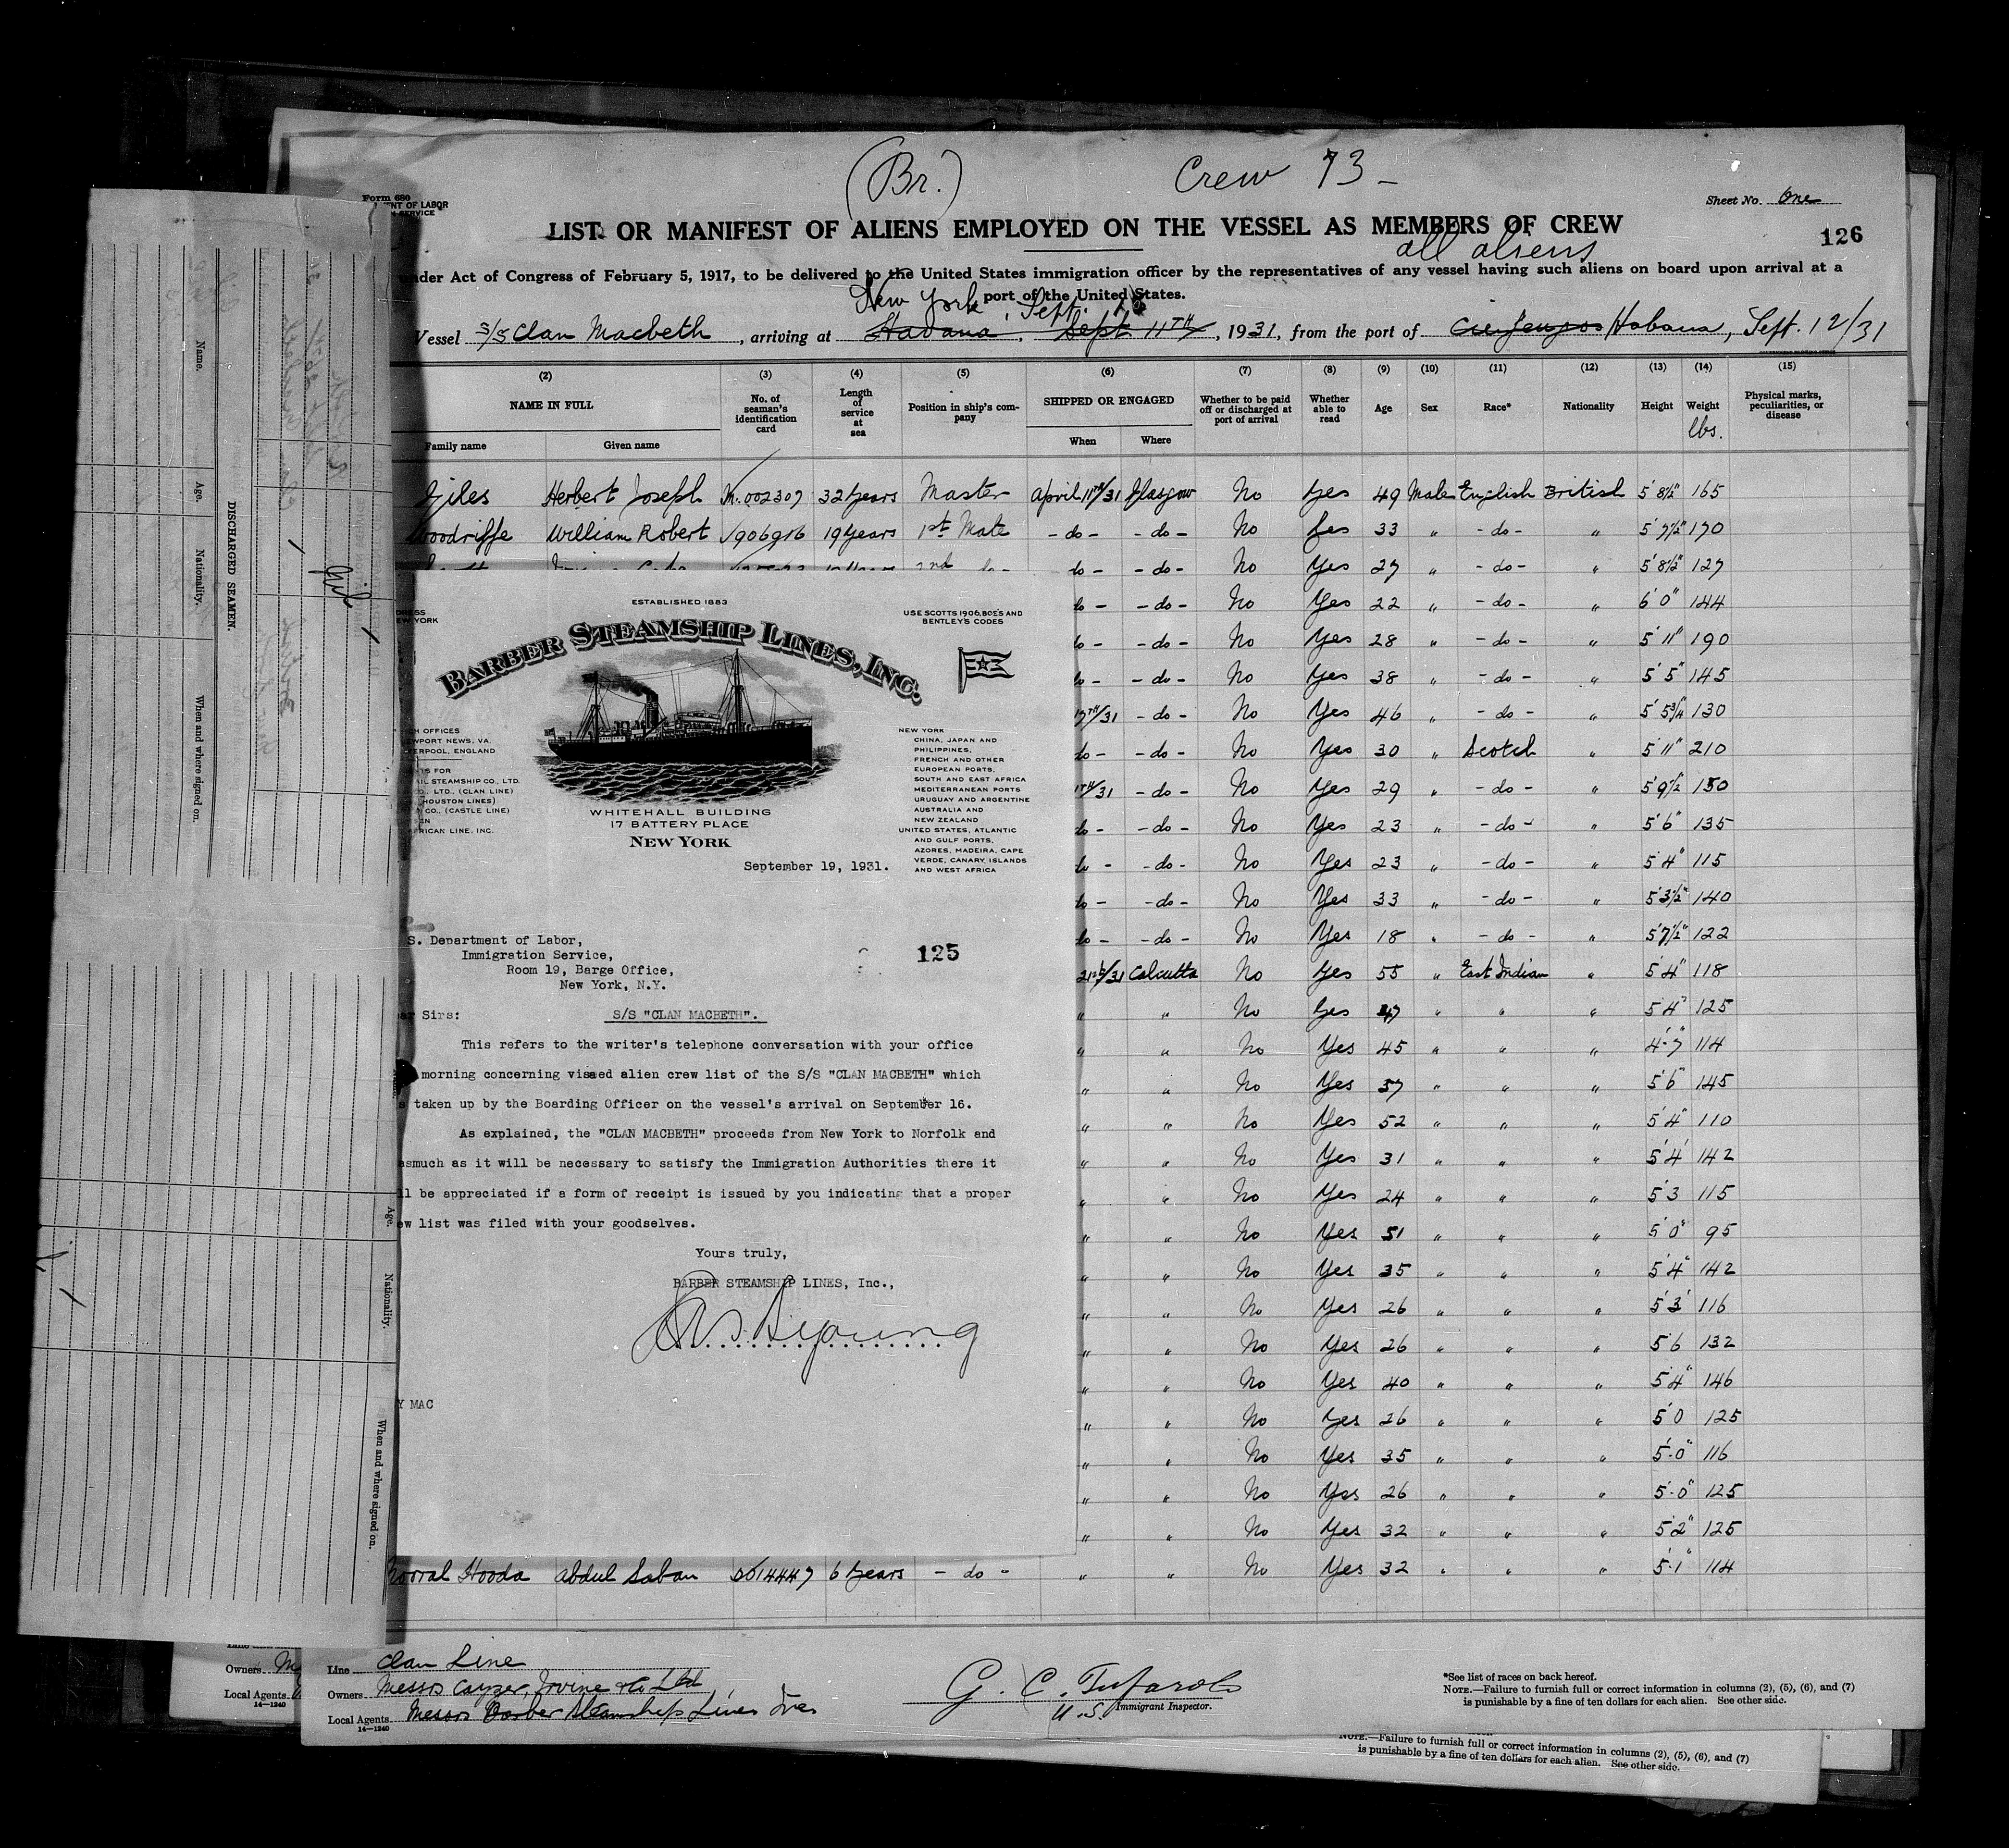 (Br.)
Crew 73 -
Form 680
Sheet No. One
LIST OR MANIFEST OF ALIENS EMPLOYED ON THE VESSEL AS MEMBERS OF CREW
126
all aliens
under Act of Congress of February 5, 1917, to be delivered to the United States immigration officer by the representatives of any vessel having such aliens on board upon arrival at a
port of the United States.
New York, Sept.
Vessel S/S Clan Macbeth, arriving at Havana, Sept 11TH, 1931, from the port of Cienfuegos Habana, Sept. 12/31
(2) (3) (4) (5) (6) (7) (8) (9) (10) (11) (12) (13) (14) (15)
NAME IN FULL
Family name
Given name
No. of seaman's identification card
Length of service at sea
Position in ship's company
SHIPPED OR ENGAGED
When
Where
Whether to be paid off or discharged at port of arrival
Whether able to read
Age
Sex
Race*
Nationality
Height
Weight
lbs.
Physical marks, peculiarities, or disease
Giles Herbert Joseph 002307 32 Years Master April 11TH/31 Glasgow No Yes 49 Male English British 5' 8½" 165
Woodriffe William Robert 906916 19 Years 1st Mate - do - - do - No Yes 33 " - do - " 5' 7½" 170
do - - do - No Yes 27 " - do - " 5' 8½" 127
do - - do - No Yes 22 " - do - " 6' 0" 144
do - - do - No Yes 28 " - do - " 5' 11" 190
do - - do - No Yes 38 " - do - " 5' 5" 145
17TH/31 - do - No Yes 46 " - do - " 5' 5¾" 130
do - - do - No Yes 30 " Scotch " 5' 11" 210
1TH/31 - do - No Yes 29 " - do - " 5' 9½" 150
do - - do - No Yes 23 " - do - " 5' 6" 135
do - - do - No Yes 23 " - do - " 5' 4" 115
do - - do - No Yes 33 " - do - " 5' 3½" 140
do - - do - No Yes 18 " - do - " 5' 7½" 122
21st/31 Calcutta No Yes 55 " East Indian " 5' 4" 118
" " No Yes 47 " " " 5' 4" 125
" " No Yes 45 " " " 4-7" 114
" " No Yes 37 " " " 5' 6" 145
" " No Yes 52 " " " 5' 4" 110
" " No Yes 31 " " " 5' 4' 142
" " No Yes 24 " " " 5' 3 115
" " No Yes 51 " " " 5' 0" 95
" " No Yes 35 " " " 5' 4" 142
" " No Yes 26 " " " 5' 3' 116
" " No Yes 26 " " " 5 6 132
" " No Yes 40 " " " 5' 4" 146
" " No Yes 26 " " " 5' 0 125
" " No Yes 35 " " " 5'-0" 116
" " No Yes 26 " " " 5'-0" 125
" " No Yes 32 " " " 5' 2" 125
Hooda Abdul Saban 6 Years - do - " " No Yes 32 " " " 5'-1" 114
ESTABLISHED 1883
USE SCOTTS 1906, BOE'S AND
BENTLEY'S CODES
BARBER STEAMSHIP LINES, INC.
OFFICES
NEWPORT NEWS, VA.
LIVERPOOL, ENGLAND
FOR
STEAMSHIP CO., LTD.
CO., LTD. (CLAN LINE)
(HOUSTON LINES)
CO., (CASTLE LINE)
AFRICAN LINE, INC.
NEW YORK
CHINA, JAPAN AND
PHILIPPINES,
FRENCH AND OTHER
EUROPEAN PORTS,
SOUTH AND EAST AFRICA
MEDITERRANEAN PORTS
URUGUAY AND ARGENTINE
AUSTRALIA AND
NEW ZEALAND
UNITED STATES, ATLANTIC
AND GULF PORTS,
AZORES, MADEIRA, CAPE
VERDE, CANARY ISLANDS
AND WEST AFRICA
WHITEHALL BUILDING
17 BATTERY PLACE
NEW YORK
September 19, 1931.
S. Department of Labor,
Immigration Service,
Room 19, Barge Office,
New York, N.Y.
125
Sirs:
S/S "CLAN MACBETH".
This refers to the writer's telephone conversation with your office
morning concerning visaed alien crew list of the S/S "CLAN MACBETH" which
taken up by the Boarding Officer on the vessel's arrival on September 16.
As explained, the "CLAN MACBETH" proceeds from New York to Norfolk and
asmuch as it will be necessary to satisfy the Immigration Authorities there it
ll be appreciated if a form of receipt is issued by you indicating that a proper
ew list was filed with your goodselves.
Yours truly,
BARBER STEAMSHIP LINES, Inc.,
Y MAC
Name.
Age.
Nationality.
When and where signed on.
DISCHARGED SEAMEN.
Nil
Age.
Nationality.
When and where signed on.
Owners
Local Agents
14—1240
Line Clan Line
Owners Messrs Cayzer, Irvine & Co Ltd
Local Agents Messrs Barber Steamship Lines Inc
14—1240
G. C. Tufarolo
U.S. Immigrant Inspector.
*See list of races on back hereof.
NOTE.—Failure to furnish full or correct information in columns (2), (5), (6), and (7)
is punishable by a fine of ten dollars for each alien. See other side.
NOTE.—Failure to furnish full or correct information in columns (2), (5), (6), and (7)
is punishable by a fine of ten dollars for each alien. See other side.